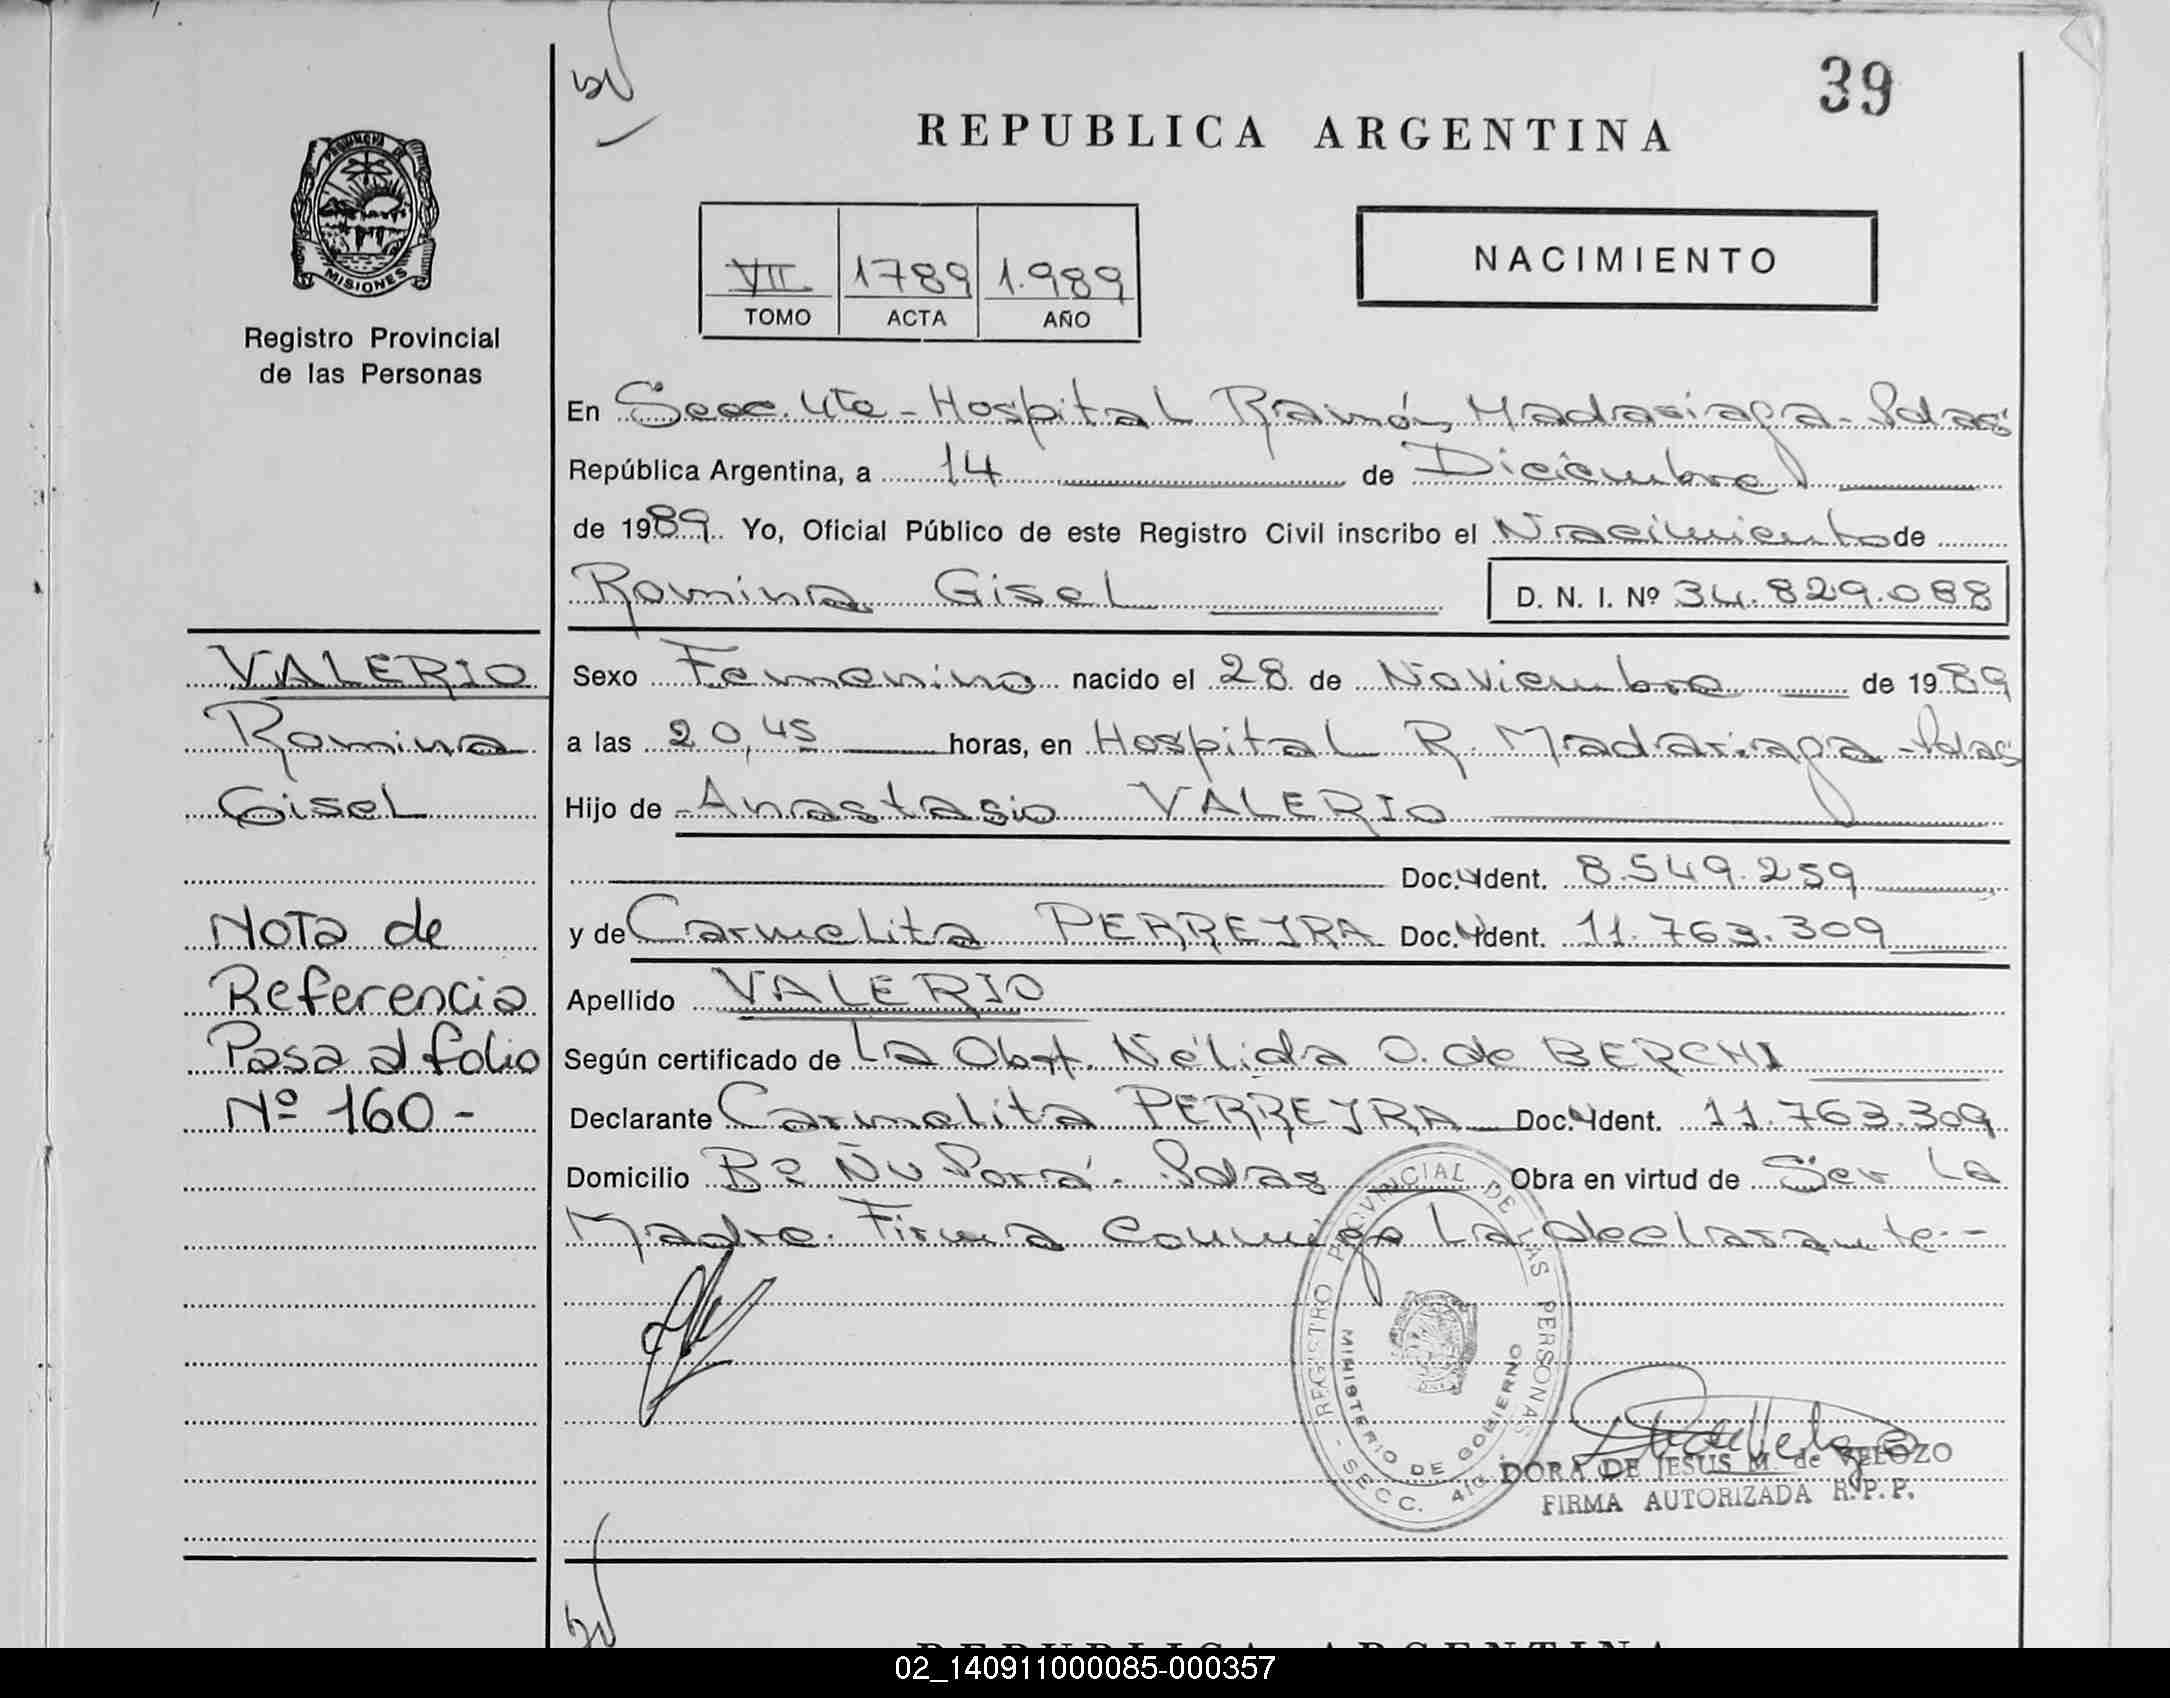 39
REPUBLICA ARGENTINA
PROVINCIA DE
MISIONES
Registro Provincial
de las Personas
VII 1789 1.989
TOMO ACTA AÑO
NACIMIENTO
En Secc. 4ta - Hospital Ramón Madariaga - Pdas
República Argentina, a 14 de Diciembre
de 1989. Yo, Oficial Público de este Registro Civil inscribo el Nacimiento de
Romina Gisel D. N. I. Nº 34.829.088
VALERIO
Romina
Gisel
Nota de
Referencia
Pasa al folio
Nº 160 -
Sexo Femenino nacido el 28 de Noviembre de 1989
a las 20,45 horas, en Hospital R. Madariaga - Pdas
Hijo de Anastasio VALERIO
Doc. Ident. 8.549.259
y de Carmelita PERREYRA Doc. Ident. 11.763.309
Apellido VALERIO
Según certificado de La Obst. Nélida O. de BERCHI
Declarante Carmelita PERREYRA Doc. Ident. 11.763.309
Domicilio Bº Ñu Porá - Pdas Obra en virtud de Ser La
Madre. Firma conmigo La declarante. -
REGISTRO PROVINCIAL DE LAS PERSONAS
MINISTERIO DE GOBIERNO
- SECC. 4ta.
DORA DE JESUS M. de VELOZO
FIRMA AUTORIZADA R.P.P.
REPUBLICA ARGENTINA
02_140911000085-000357